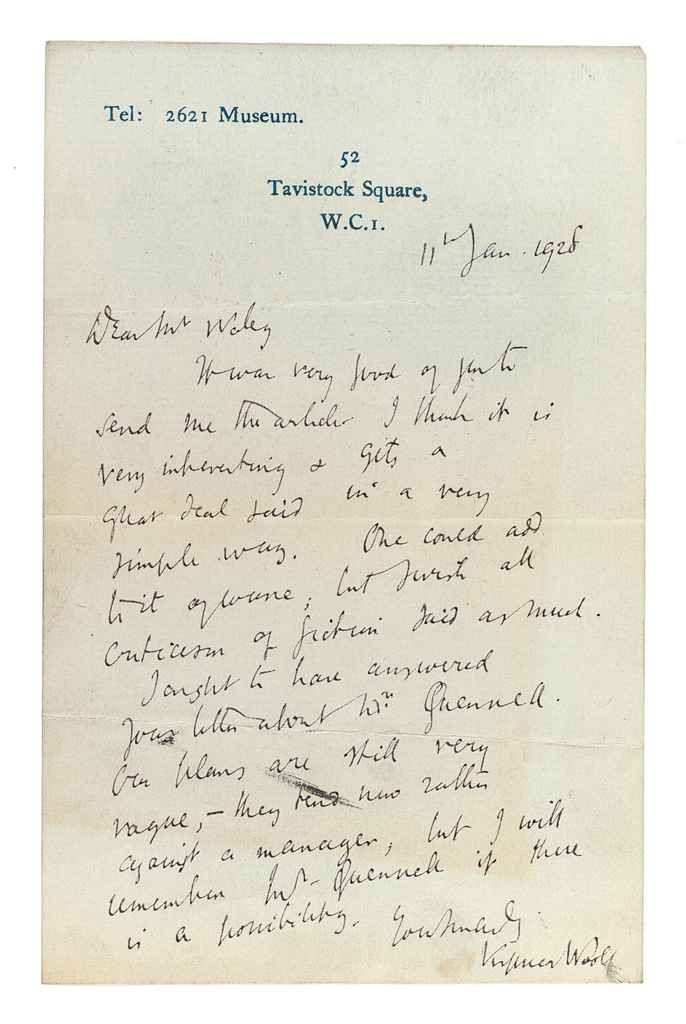 Tel: 2621 Museum.
52
Tavistock Square,
W.C.1.
11th Jan. 1928
Dear Mr Waley
It was very good of you to
send me the article. I think it is
very interesting & gets a
great deal said in a very
simple way. One could add
to it of course, but I wish all
criticism of fiction said as much.
I ought to have answered
your letter about Mr. Quennell.
Our plans are still very
vague, – they tend now rather
against a manager, but I will
remember Mr. Quennell if there
is a possibility.
Yours sincerely
Virginia Woolf